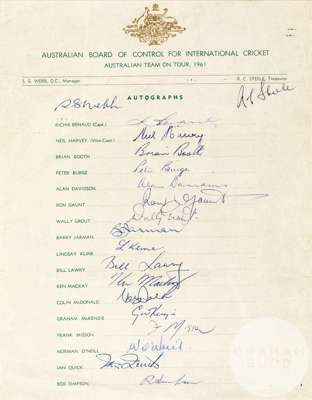 AUSTRALIAN BOARD OF CONTROL FOR INTERNATIONAL CRICKET
AUSTRALIAN TEAM ON TOUR, 1961
S. G. WEBB, Q.C., Manager R. C. STEELE, Treasurer
AUTOGRAPHS
S G Webb
RICHIE BENAUD (Capt.)
NEIL HARVEY (Vice-Capt.) Neil Harvey
BRIAN BOOTH Brian Booth
PETER BURGE Peter Burge
ALAN DAVIDSON Alan Davidson
RON GAUNT Ron Gaunt
WALLY GROUT Wally Grout
BARRY JARMAN BJarman
LINDSAY KLINE L Kline
BILL LAWRY Bill Lawry
KEN MACKAY Ken Mackay
COLIN McDONALD
GRAHAM McKENZIE
FRANK MISSON F Misson
NORMAN O'NEILL
IAN QUICK Ian Quick
BOB SIMPSON